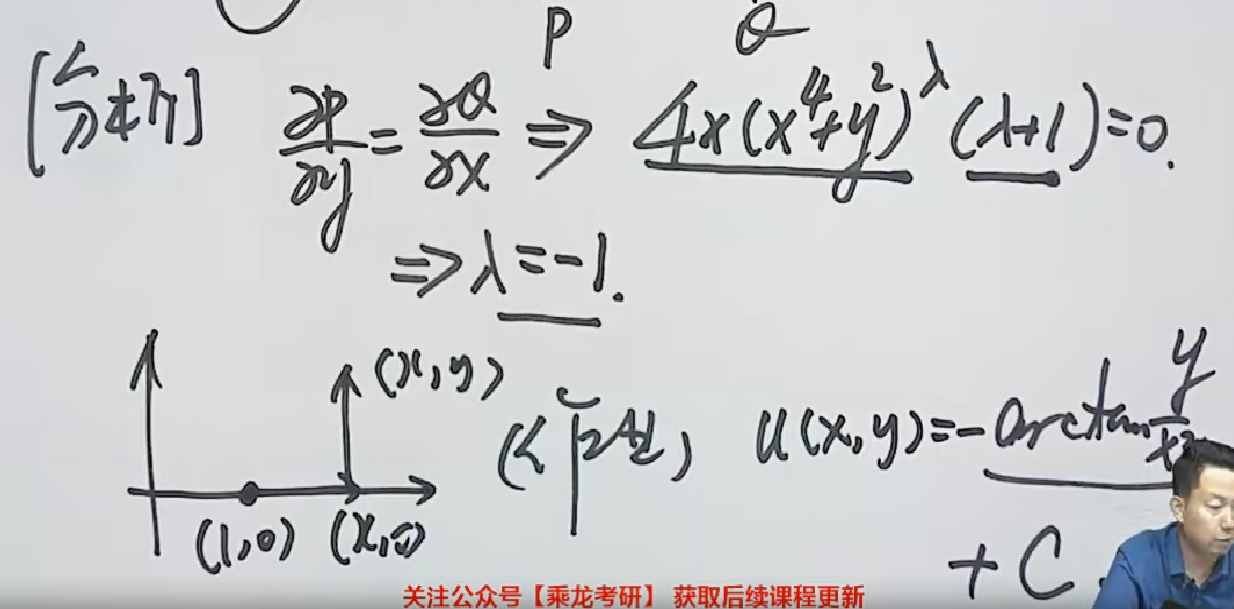 P Q
[分析] ∂P/∂y = ∂Q/∂x ⇒ 4x(x⁴+y²)^λ (λ+1)=0.
⇒λ=-1.
(x,y)
u(x,y)=-arctan y/x²
(1,0) (x,0)
+ C
关注公众号【乘龙考研】 获取后续课程更新